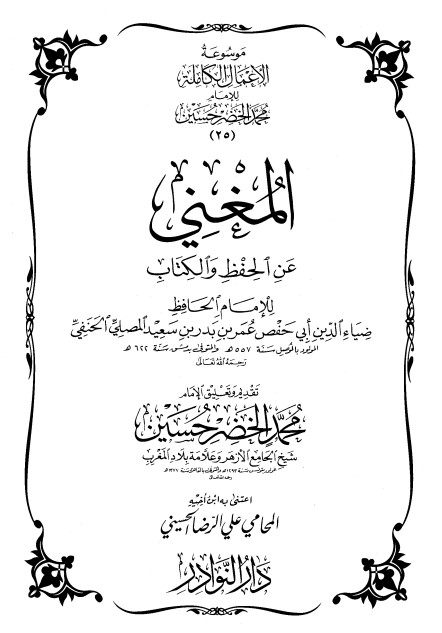 مَوسُوعَةُ
الأَعْمَالِ الكَامِلَةِ
لِلإِمَامِ
مُحَمَّد الخَضِر حُسَيْن
(٢٥)
المُغْنِي
عَنِ الحِفْظِ وَالكِتَابِ
لِلإِمَامِ الحَافِظِ
ضِيَاءِ الدِّينِ أَبِي حَفْصٍ عُمَر بنِ بَدْرِ بنِ سَعِيدٍ المَصِلِيِّ الحَنَفِيِّ
المولود بالموصل سنة ٥٥٧ هـ والمتوفى بدمشق سنة ٦٢٢ هـ
رَحِمَهُ اللهُ تَعَالَى
تَقْدِيمُ وَتَعْلِيقُ الإِمَامِ
مُحَمَّد الخَضِر حُسَيْن
شَيْخِ الجَامِعِ الأَزْهَرِ وَعَلَّامَةِ بِلَادِ المَغْرِبِ
اعتَنَى بِهِ ابنُ أَخِيهِ
المحامي علي الرّضا الحسيني
دَارُ النَّوَادِرِ